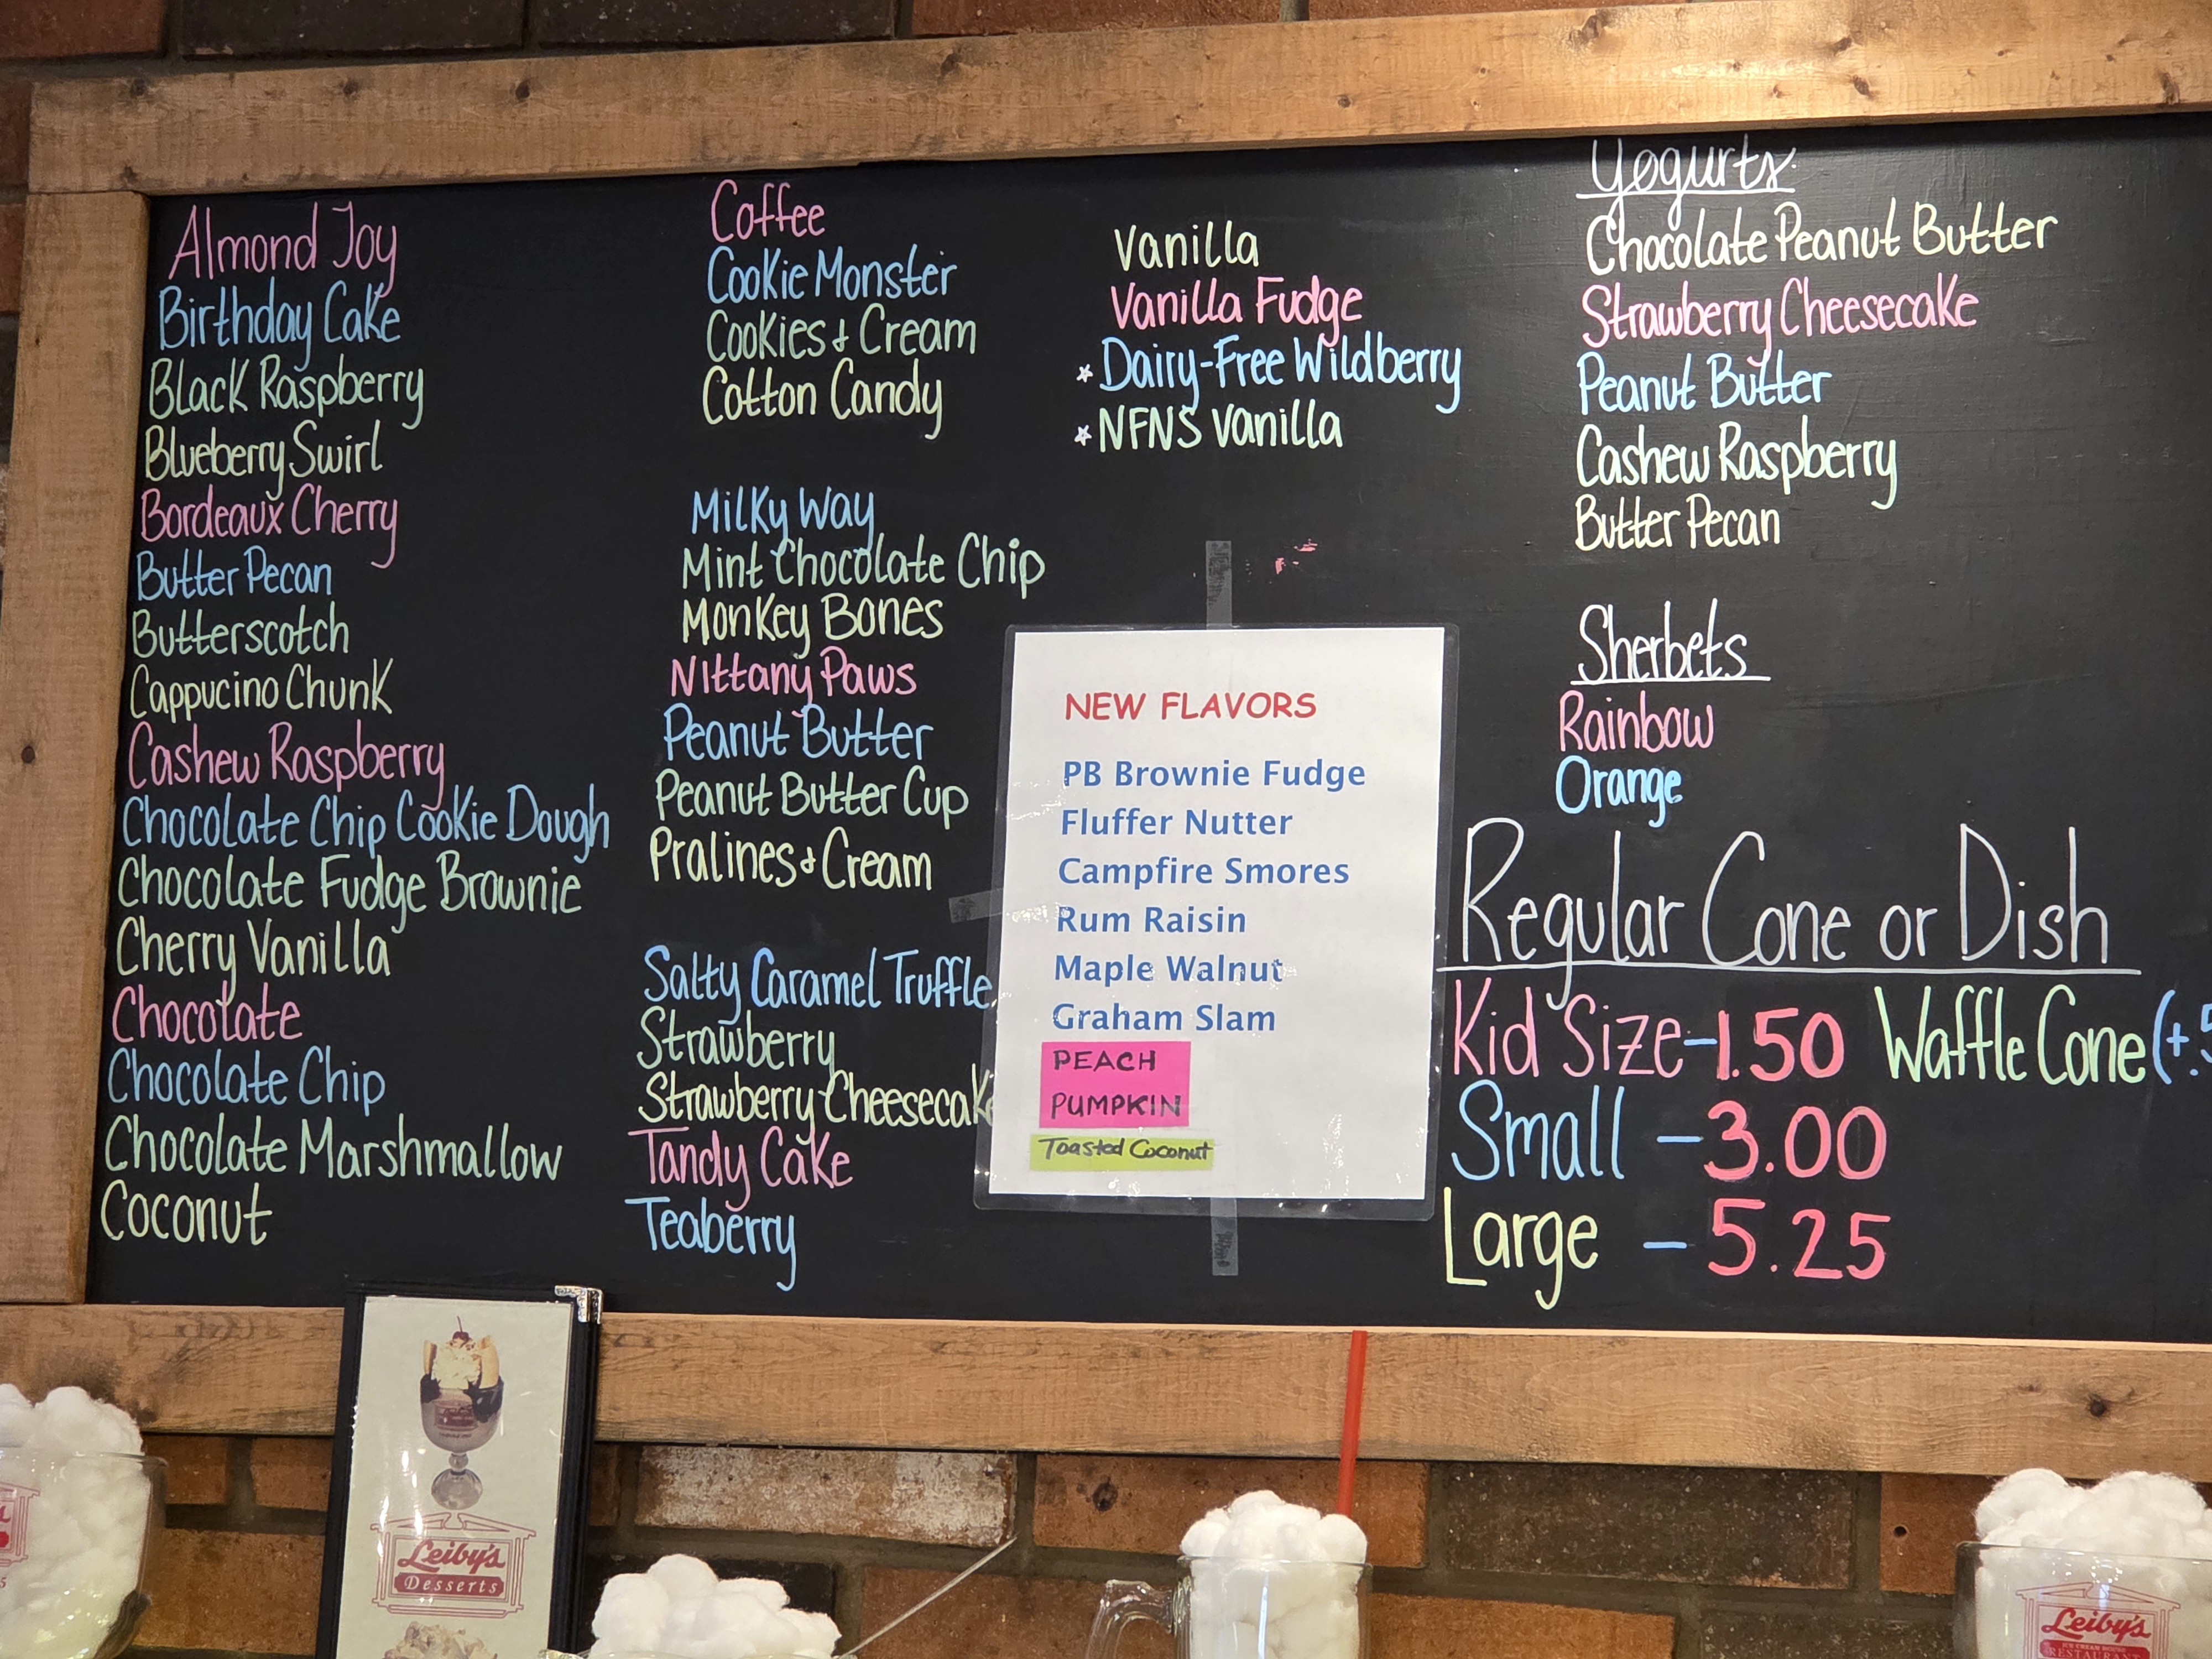 Almond Joy
Birthday Cake
Black Raspberry
Blueberry Swirl
Bordeaux Cherry
Butter Pecan
Butterscotch
Cappucino Chunk
Cashew Raspberry
Chocolate Chip Cookie Dough
Chocolate Fudge Brownie
Cherry Vanilla
Chocolate
Chocolate Chip
Chocolate Marshmallow
Coconut
Coffee
Cookie Monster
Cookies & Cream
Cotton Candy
Milky Way
Mint Chocolate Chip
Monkey Bones
Nittany Paws
Peanut Butter
Peanut Butter Cup
Pralines & Cream
Salty Caramel Truffle
Strawberry
Strawberry Cheesecake
Tandy Cake
Teaberry
Vanilla
Vanilla Fudge
* Dairy-Free Wildberry
* NFNS Vanilla
NEW FLAVORS
PB Brownie Fudge
Fluffer Nutter
Campfire Smores
Rum Raisin
Maple Walnut
Graham Slam
PEACH
PUMPKIN
Toasted Coconut
Yogurts
Chocolate Peanut Butter
Strawberry Cheesecake
Peanut Butter
Cashew Raspberry
Butter Pecan
Sherbets
Rainbow
Orange
Regular Cone or Dish
Kid Size - 1.50 Waffle Cone (+.5
Small - 3.00
Large - 5.25
Leiby's
Desserts
Leiby's
ICE CREAM HOUSE
RESTAURANT